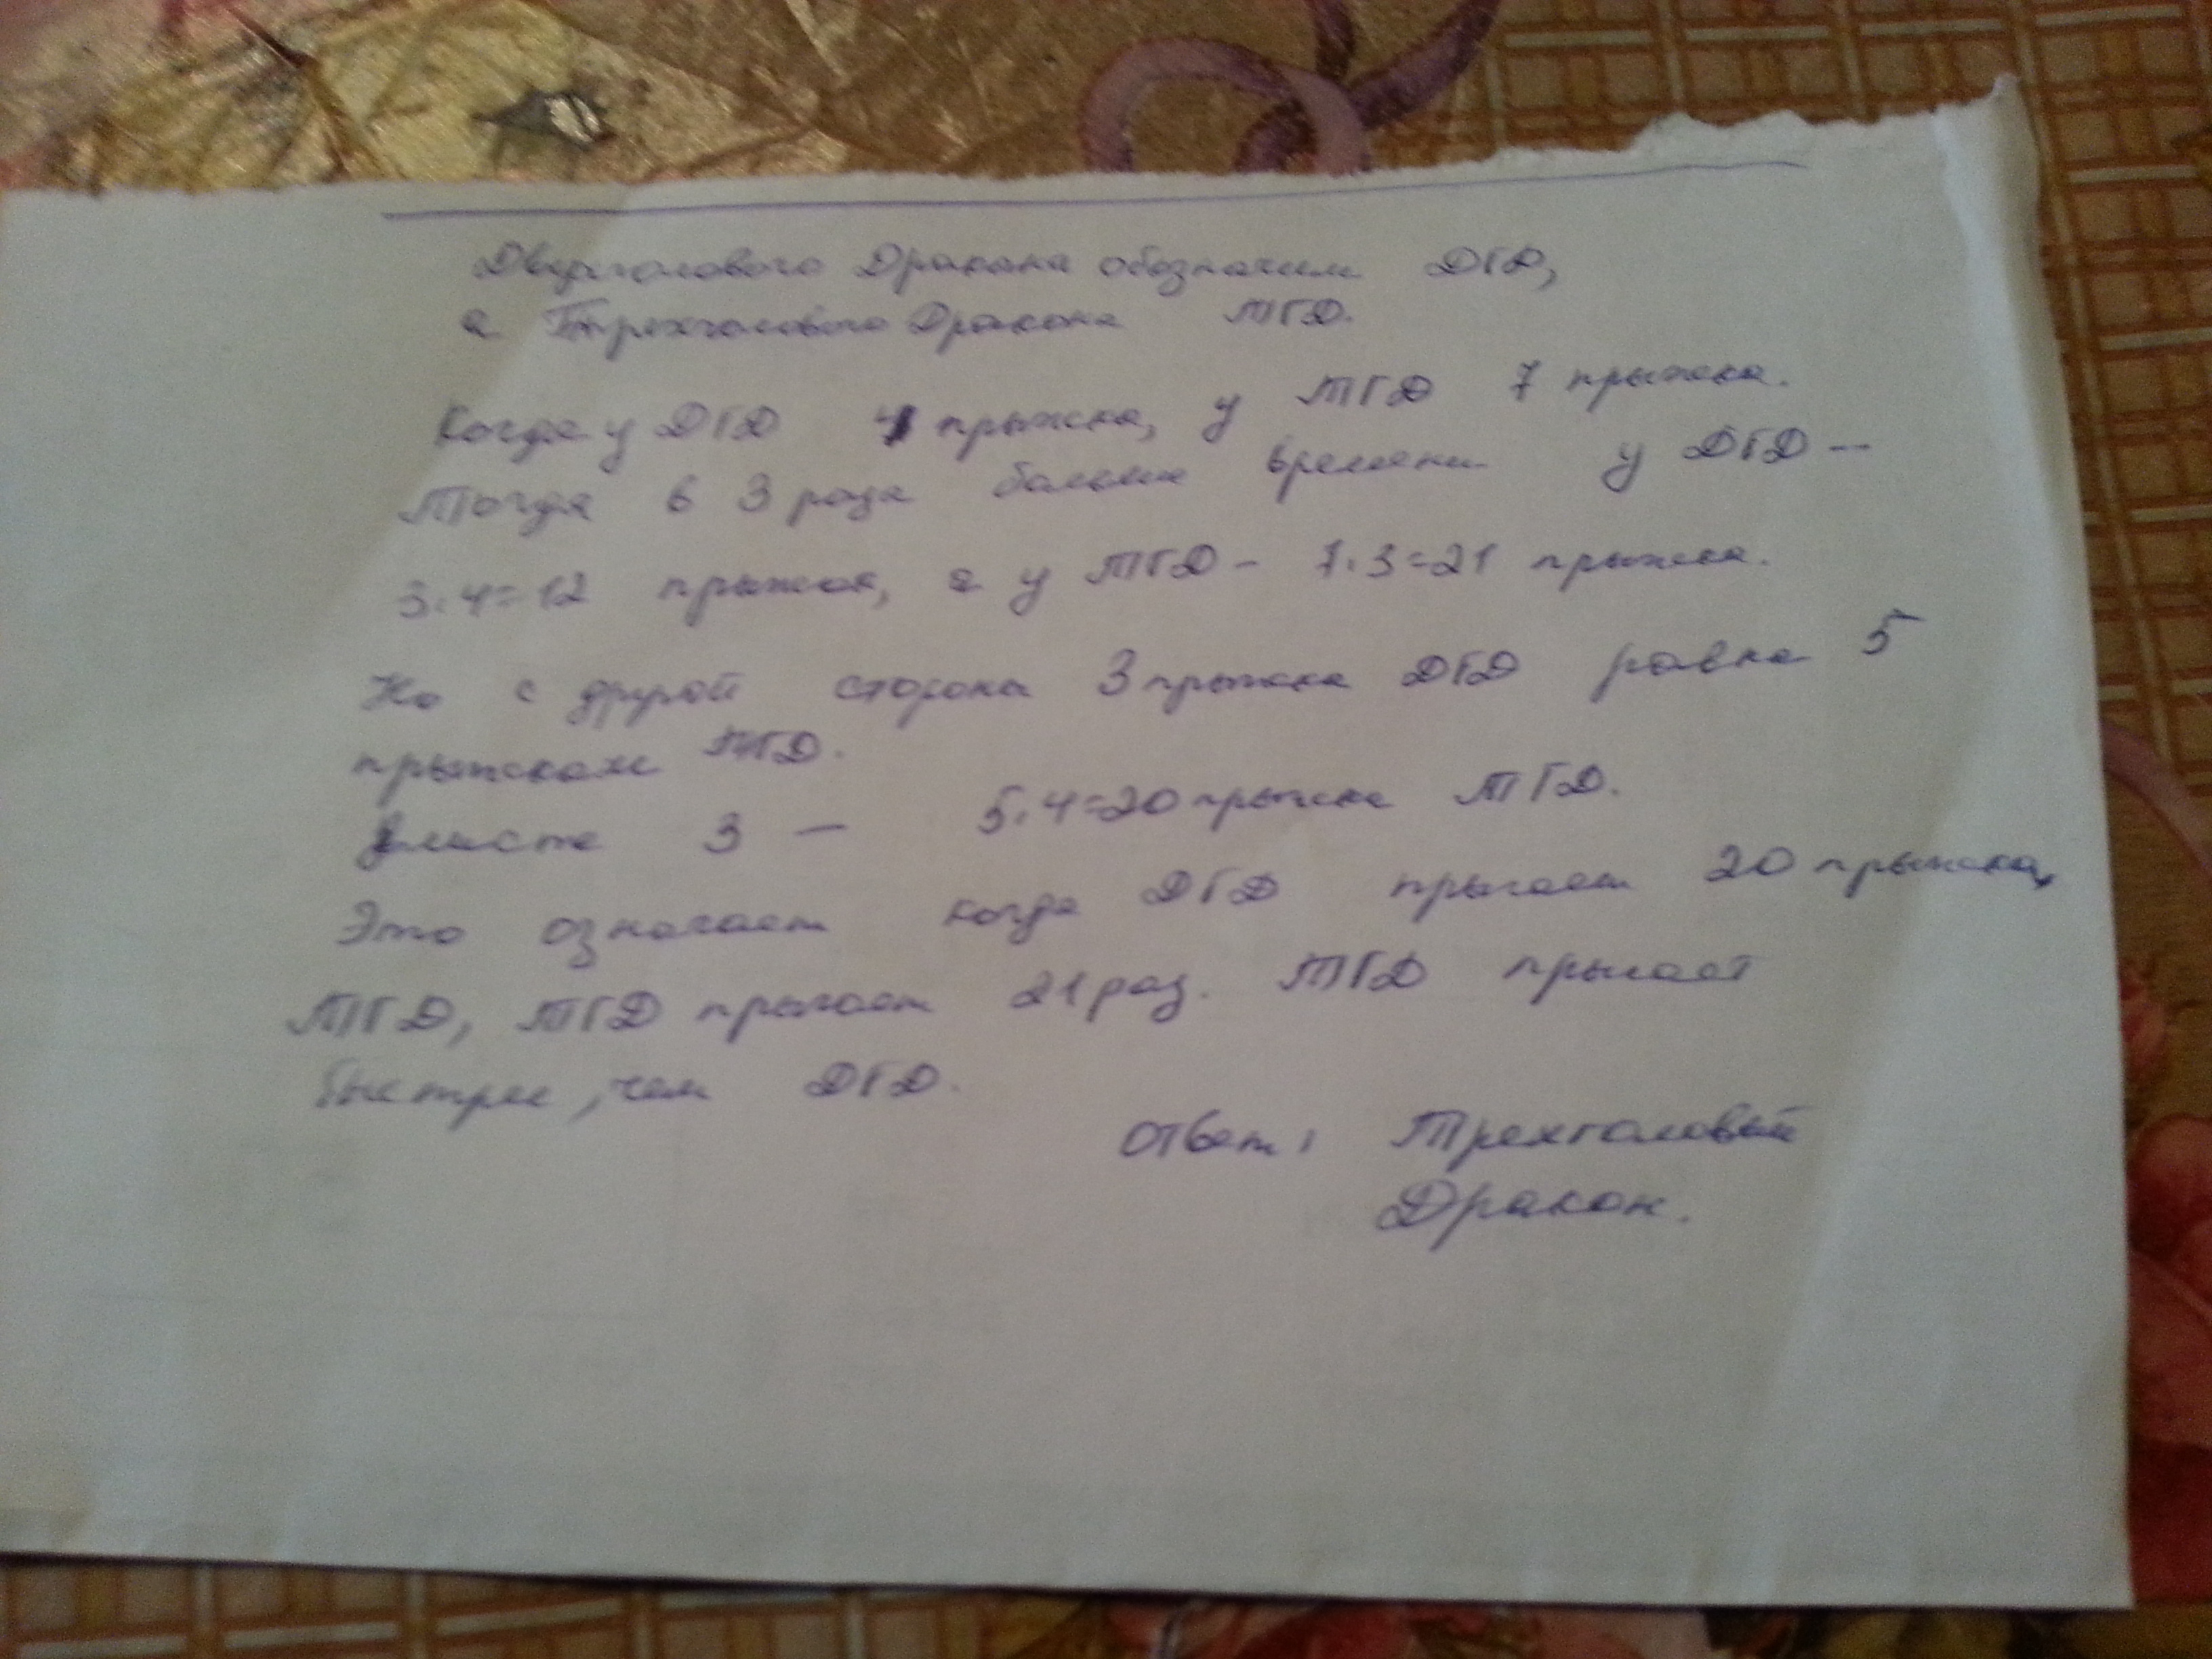 Двухголового Дракона обозначим ДГД,
а Трехголового Дракона ТГД.
Когда у ДГД 4 прыжка, у ТГД 7 прыжка.
Тогда в 3 раза больше времени у ДГД —
3·4=12 прыжка, а у ТГД - 7·3=21 прыжка.
Но с другой стороны 3 прыжка ДГД равна 5
прыжкам ТГД.
Вместе 3 — 5·4=20 прыжка ТГД.
Это означает когда ДГД прыгает 20 прыжка,
ТГД, ТГД прыгает 21 раз. ТГД прыгает
быстрее, чем ДГД.
Ответ: Трехголовый
Дракон.